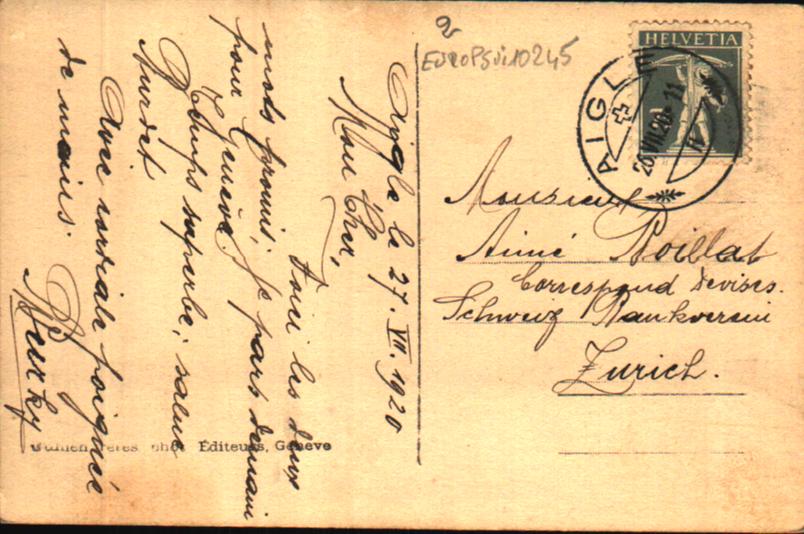 Aigle le 27.VII.1920
Mon Cher,
Voici les deux
mots promis, Je pars demain
pour Genève.
Temps superbe; salue
Burdet
Avec cordiale poignée
de mains.
2
EUROPSUI10245
HELVETIA
AIGLE
26.VII.20 11
Monsieur
Aimé Boillat
Correspond Devises.
Schweiz Bankverein
Zurich.
Éditeurs, Genève